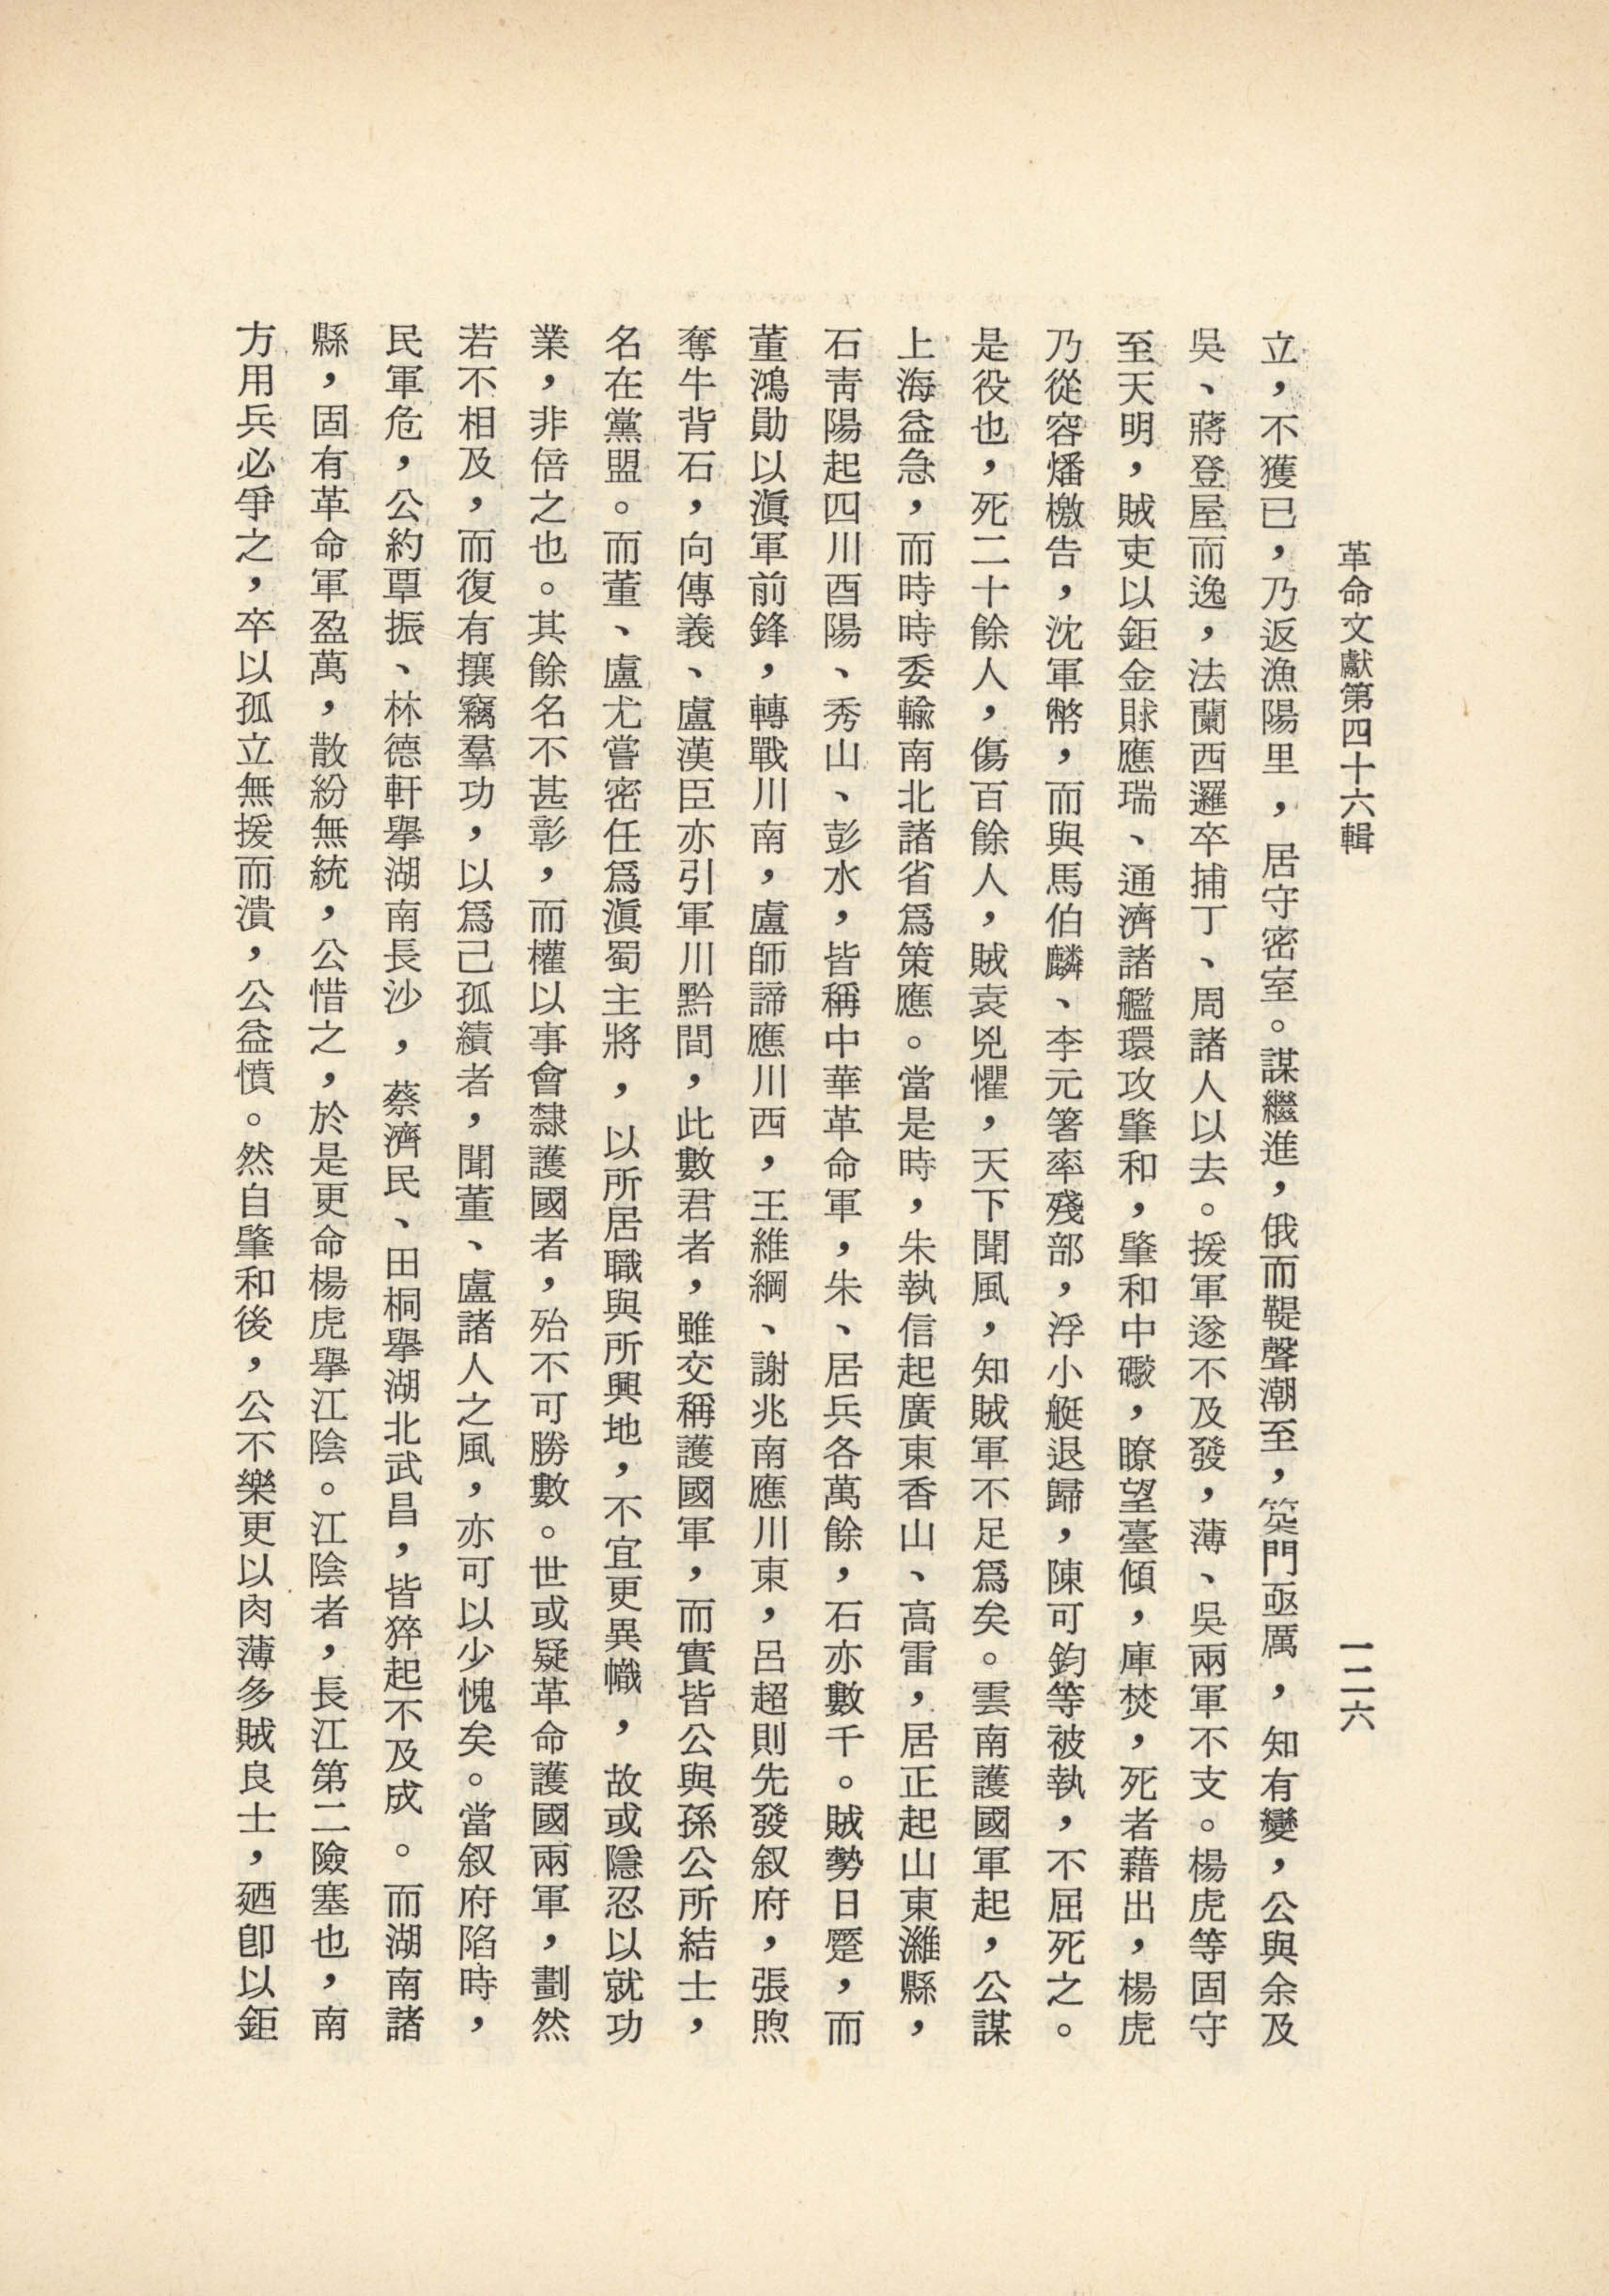 革命文獻第四十六輯
一二六
立，不獲已，乃返漁陽里，居守密室。謀繼進，俄而鞮聲潮至，築門亟厲，知有變，公與余及
吳、蔣登屋而逸，法蘭西邏卒捕丁、周諸人以去。援軍遂不及發，薄、吳兩軍不支。楊虎等固守
至天明，賊吏以鉅金賕應瑞、通濟諸艦環攻肇和，肇和中礮，瞭望臺傾，庫焚，死者藉出，楊虎
乃從容燔檄告，沈軍幣，而與馬伯麟、李元箸率殘部，浮小艇退歸，陳可鈞等被執，不屈死之。
是役也，死二十餘人，傷百餘人，賊袁兇懼，天下聞風，知賊軍不足爲矣。雲南護國軍起，公謀
上海益急，而時時委輸南北諸省爲策應。當是時，朱執信起廣東香山、高雷，居正起山東濰縣，
石靑陽起四川酉陽、秀山、彭水，皆稱中華革命軍，朱、居兵各萬餘，石亦數千。賊勢日蹙，而
董鴻勛以滇軍前鋒，轉戰川南，盧師諦應川西，王維綱、謝兆南應川東，呂超則先發叙府，張煦
奪牛背石，向傳義、盧漢臣亦引軍川黔間，此數君者，雖交稱護國軍，而實皆公與孫公所結士，
名在黨盟。而董、盧尤嘗密任爲滇蜀主將，以所居職與所興地，不宜更異幟，故或隱忍以就功
業，非倍之也。其餘名不甚彰，而權以事會隸護國者，殆不可勝數。世或疑革命護國兩軍，劃然
若不相及，而復有攘竊羣功，以爲己孤績者，聞董、盧諸人之風，亦可以少愧矣。當叙府陷時，
民軍危，公約覃振、林德軒擧湖南長沙，蔡濟民、田桐擧湖北武昌，皆猝起不及成。而湖南諸
縣，固有革命軍盈萬，散紛無統，公惜之，於是更命楊虎擧江陰。江陰者，長江第二險塞也，南
方用兵必爭之，卒以孤立無援而潰，公益憤。然自肇和後，公不樂更以肉薄多賊良士，廼卽以鉅